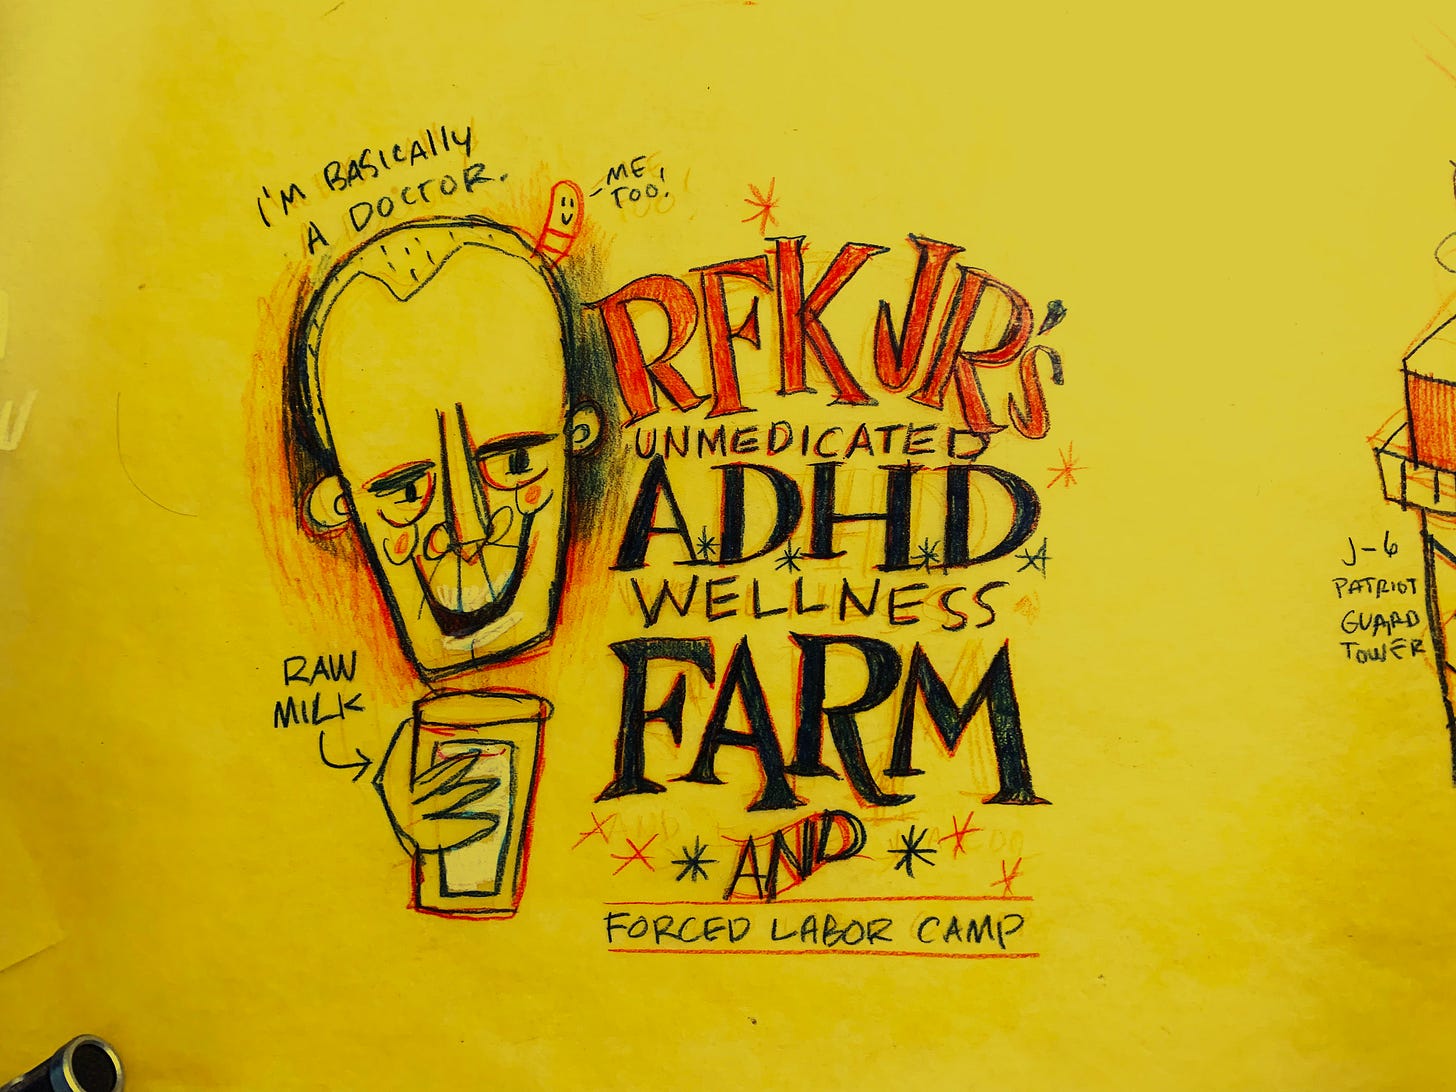 I'M BASICALLY
A DOCTOR.
-ME,
TOO!
RFK JR's
UNMEDICATED
ADHD
WELLNESS
FARM
AND
FORCED LABOR CAMP
RAW
MILK
J-6
PATRIOT
GUARD
TOWER